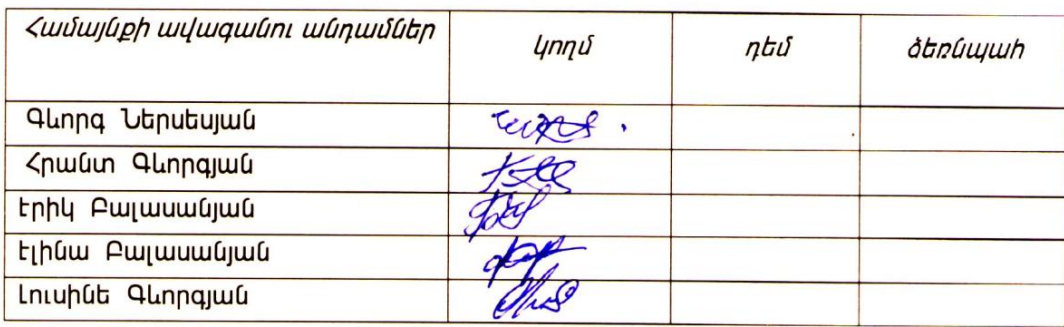 Համայնքի ավագանու անդամներ կողմ դեմ ձեռնպահ
Գևորգ Ներսեսյան
Հրանտ Գևորգյան
Էրիկ Բալասանյան
Էլինա Բալասանյան
Լուսինե Գևորգյան